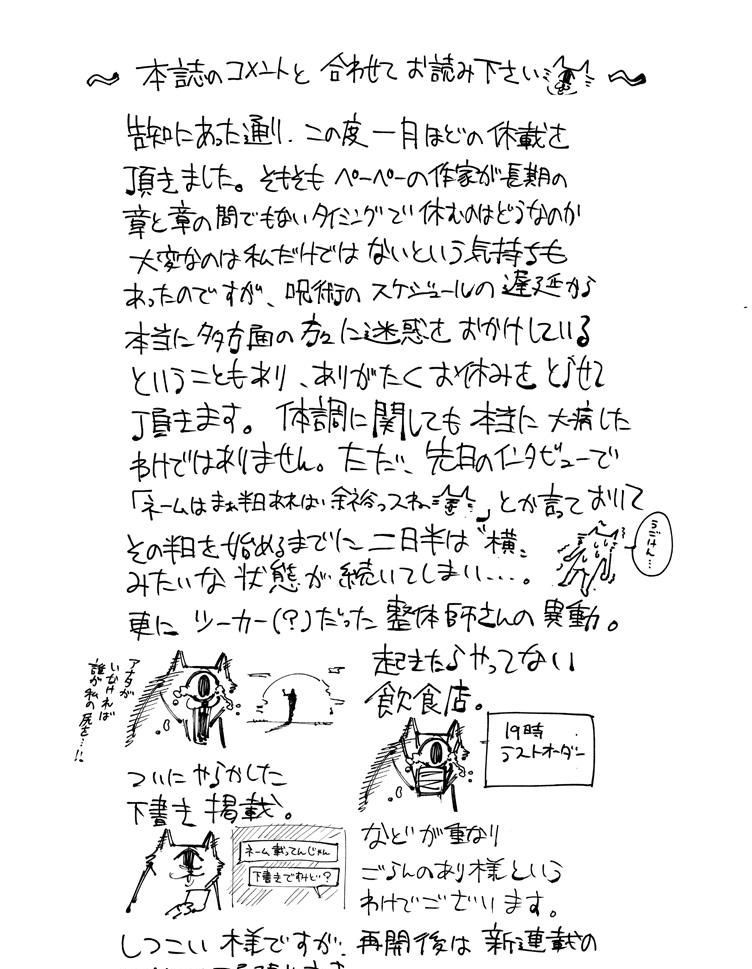 本誌のコメントと合わせてお読み下さい
告知にあった通り、この度一月ほどの休載を
頂きました。そもそもペーペーの作家が長期の
章と章の間でもないタイミングで休むのはどうなのか
大変なのは私だけではないという気持ちも
あったのですが、呪術のスケジュールの遅延から
本当に多方面の方々に迷惑をおかけしている
ということもあり、ありがたくお休みをとらせて
頂きます。体調に関しても本当に大病した
わけではありません。ただ、先日のインタビューで
「ネームはまぁ半日あれば余裕っスね」とか言っておいて
その半日を始めるまでに二日半は〝横〟
みたいな状態が続いてしまい…。
うごけん…
更にツーカー(?)だった整体師さんの異動。
アナタが
いなければ
誰が私の尻を…!!
起きたらやってない
飲食店。
19時
ラストオーダー
ついにやらかした
下書き掲載。
ネーム載ってんじゃん
下書きですけど?
などが重なり
ごらんのあり様という
わけでございます。
しつこい様ですが、再開後は新連載の